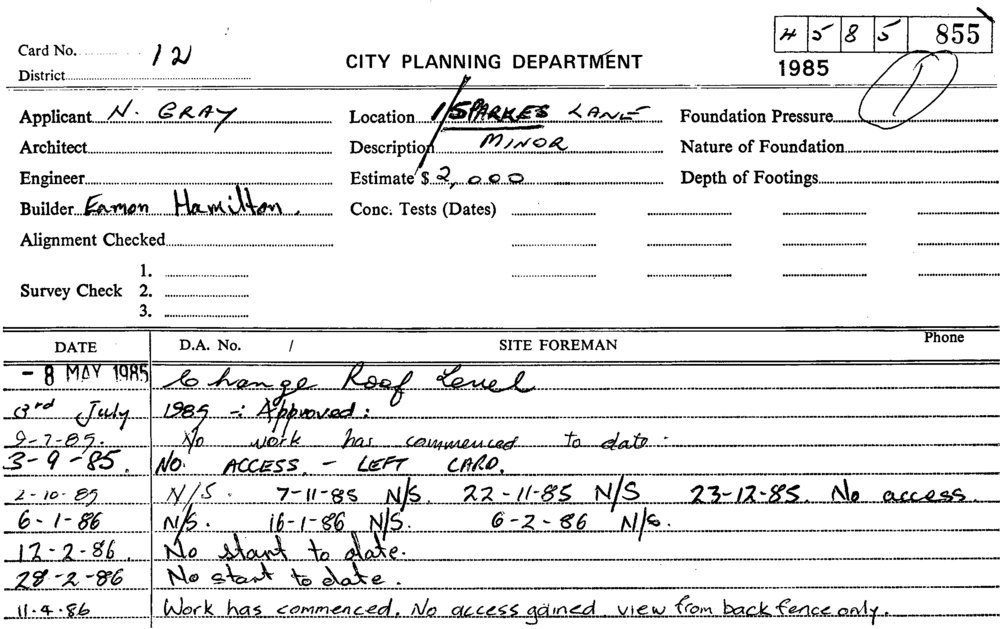 4 5 8 5 855
Card No. 12
CITY PLANNING DEPARTMENT
District
1985
1
Applicant N. GRAY Location 1/SPARKES LANE Foundation Pressure
Architect Description MINOR Nature of Foundation
Engineer Estimate $ 2,000 Depth of Footings
Builder Eamon Hamilton. Conc. Tests (Dates)
Alignment Checked
1.
Survey Check 2.
3.
DATE D.A. No. / SITE FOREMAN Phone
- 8 MAY 1985 Change Roof Level
3rd July 1985 -: Approved:
9-7-85. No work has commenced to date.
3-9-85. NO. ACCESS. - LEFT CARD.
2-10-85 N/S. 7-11-85 N/S. 22-11-85 N/S 23-12-85. No access.
6-1-86 N/S. 16-1-86 N/S. 6-2-86 N/S.
12-2-86. No start to date.
28-2-86 No start to date.
11.4.86 Work has commenced. No access gained view from back fence only.